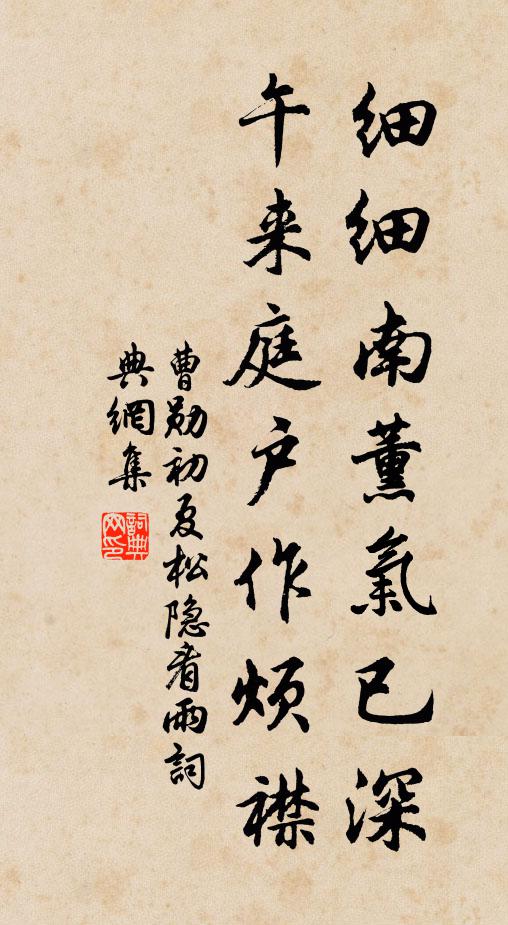 细细南薰氣已深
午来庭户作烦襟
曹勋初夏松隐看雨詞
典網集
詞典網印